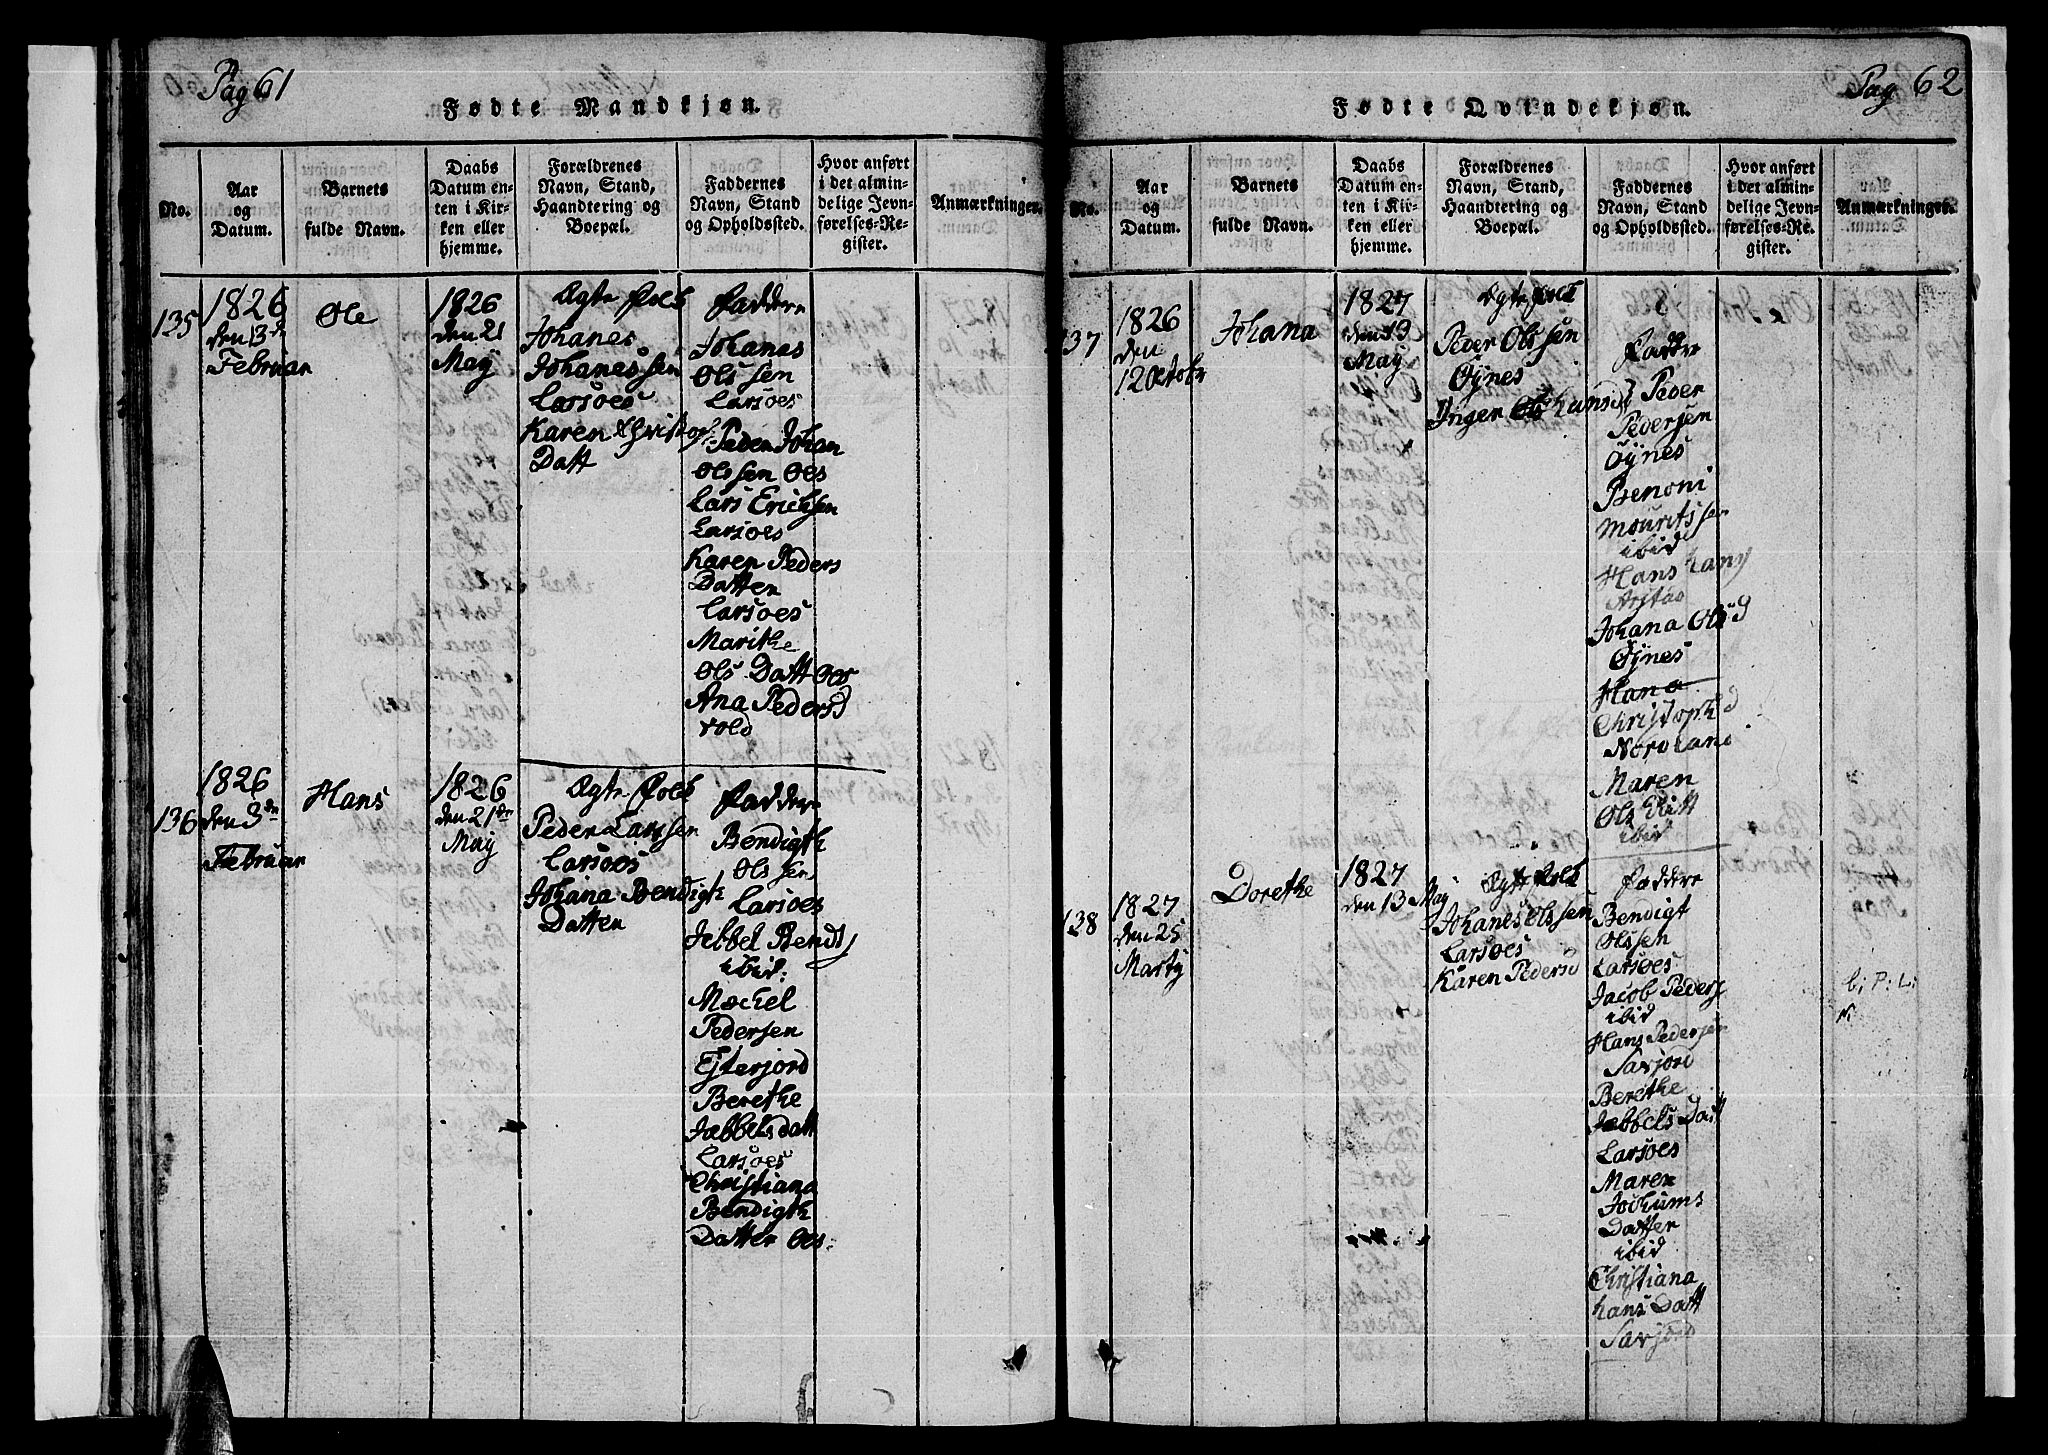 Pag 61
Fødte Mandkjøn.
No.
Aar
og
Datum.
Barnets
fulde Navn.
Daabs
Datum en-
ten i Kir-
ken eller
hjemme.
Forældrenes
Navn, Stand,
Haandtering og
Boepæl.
Faddernes
Navn, Stand
og Opholdssted.
Hvor anført
i det almin-
delige Jevn-
førelses-Re-
gister.
Anmærkninger.
135
1826
den 13de
Februar
Ole
1826
den 21
May
Ægte Folk
Johanes
Johanessen
Larsoes
Karen Christop:
Datt
Faddere
Johanas
Olssen
Larsoes
Peder Johan
Olssen Oes
Lars Erichsen
Larsoes
Karen Peders
Datter
Larsoes
Marithe
Ols Datt Oes
Ana Pedersd
vold
136
1826
den 3de
Februar
Hans
1826
den 21de
May
Ægte Folk
Peder Larssen
Larsoes
Johana Bendigth
Datter
Faddere
Bendigth
Olssen
Larsoes
Jebbel Bendt
ibid:
Mechel
Pedersen
Efterjord
Berethe
Jæbbels datt
Larsoes
Christiana
Bendigth
Datter Oes:
Pag 62
Fødte Qvindekjøn.
No.
Aar
og
Datum.
Barnets
fulde Navn.
Daabs
Datum en-
ten i Kir-
ken eller
hjemme.
Forældrenes
Navn, Stand,
Haandtering og
Boepæl.
Faddernes
Navn, Stand
og Opholdssted.
Hvor anført
i det almin-
delige Jevn-
førelses-Re-
gister.
Anmærkninger.
37
1826
den
12 Oktobr
Johana
1827
den 13
May
Ægte Folk
Peder Olssen
Øjnes
Inger
Faddre
Peder
Pedersen
Øjnes
Benoni
Mouritssen
ibid
Hans Hans
Johana Olsd
Øjnes
Hana
Christophd
Nordland
Maren
Ols Datt
ibid
138
1827
den 25
Martj
Dorethe
1827
den 13 May
Ægte Folk
Johanes Olssen
Larsoes
Karen Pedersd
Faddere
Bendigt
Olssen
Larsoes
Jacob Peders
ibid
Hans Pedersen
Savjord
Berethe
Jæbbels Datt
Larsoes
Maren
Jochums
Datter
ibid
Christiana
Hans Datt
Savjord
b: P: L: